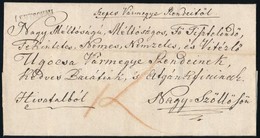 Szepes Vármegye Rendeitől
Nagy Méltóságú, Méltóságos, Fő Tisztelendő,
Tekintetes, Nemes, Nemzetes, és Vitézlő
Ugocsa Vármegye Rendeinek,
kedves Barátink, s Atyánkfiainak
Hivatalból
Nagy-Szöllősön